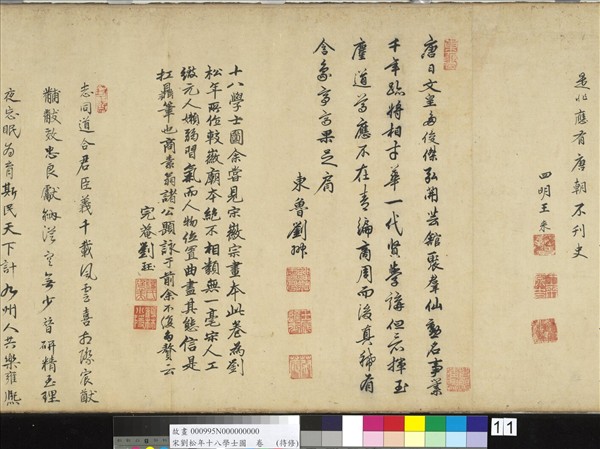 應有唐朝不刊史
四明王
唐日文皇多俊傑弘開芸館聚羣仙勳名事業
千年跡將相才華一代賢學講但言揮玉
麈道尊應不在青編商周而後真稀有
東魯劉
十八學士圖余嘗見宋徽宗畫本此卷為劉
松年所作較徽廟本絕不相類無一毫宋人工
緻元人嫩弱習氣而人物位置曲盡其態信是
扛鼎筆也商素菴諸公題詠于前余不復為贅云
完菴劉珏
志同道合君臣義千載風雲喜初際宸猷
黼黻效忠良獻納從容無少替研精至理
夜忘眠為育斯民天下計九州人共樂雍熙
故畫 000995N000000000
宋劉松年十八學士圖 卷 (待修)
11